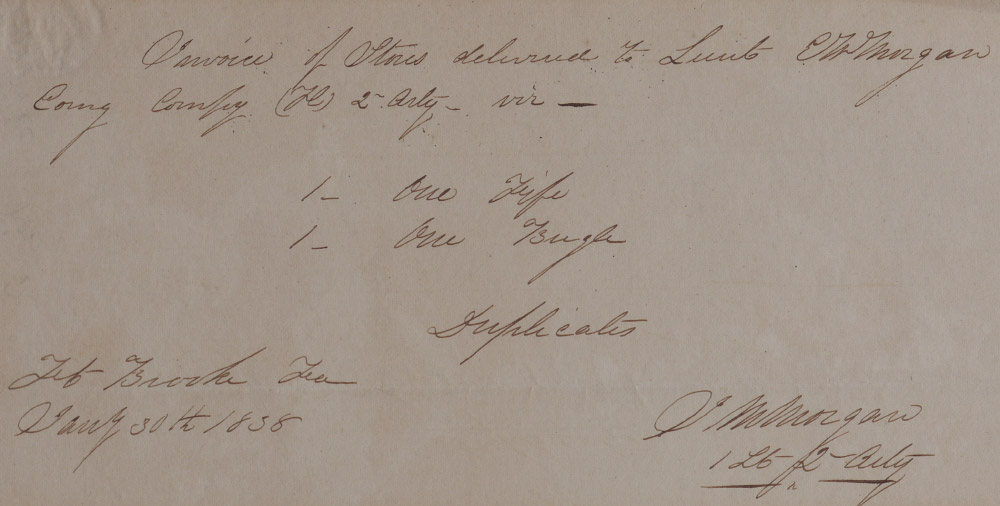 Invoice of Stores delivered to Lieut E W Morgan
Comg Compy (H) 2 Arty - viz —
1 - One Fife
1 - One Bugle
Duplicates
Ft Brooke Fa
Jany 30th 1838
J M Morgan
1 Lt 2 Arty